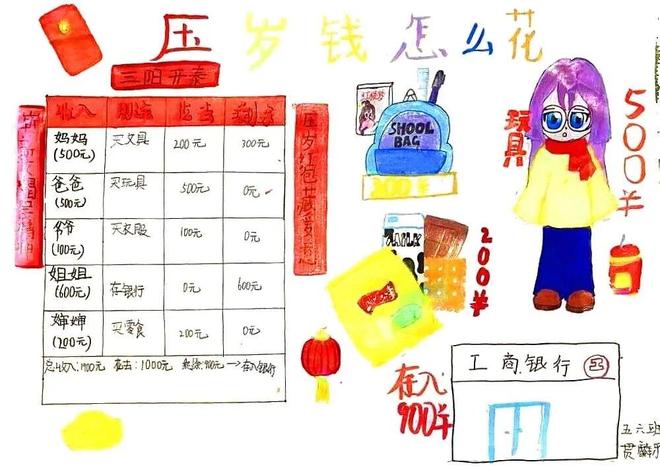 压岁钱怎么花
三阳开泰
收入 用途 花去 剩余
妈妈(500元) 买文具 200元 300元
爸爸(500元) 买玩具 500元 0元
爷爷(100元) 买衣服 100元 0元
姐姐(600元) 存银行 0元 600元
婶婶(200元) 买零食 200元 0元
总收入:1900元 花去:1000元 剩余:900元→存入银行
SHOOL
BAG
200元
玩具
500¥
MILK
200¥
存入
900¥
工商银行
五六班